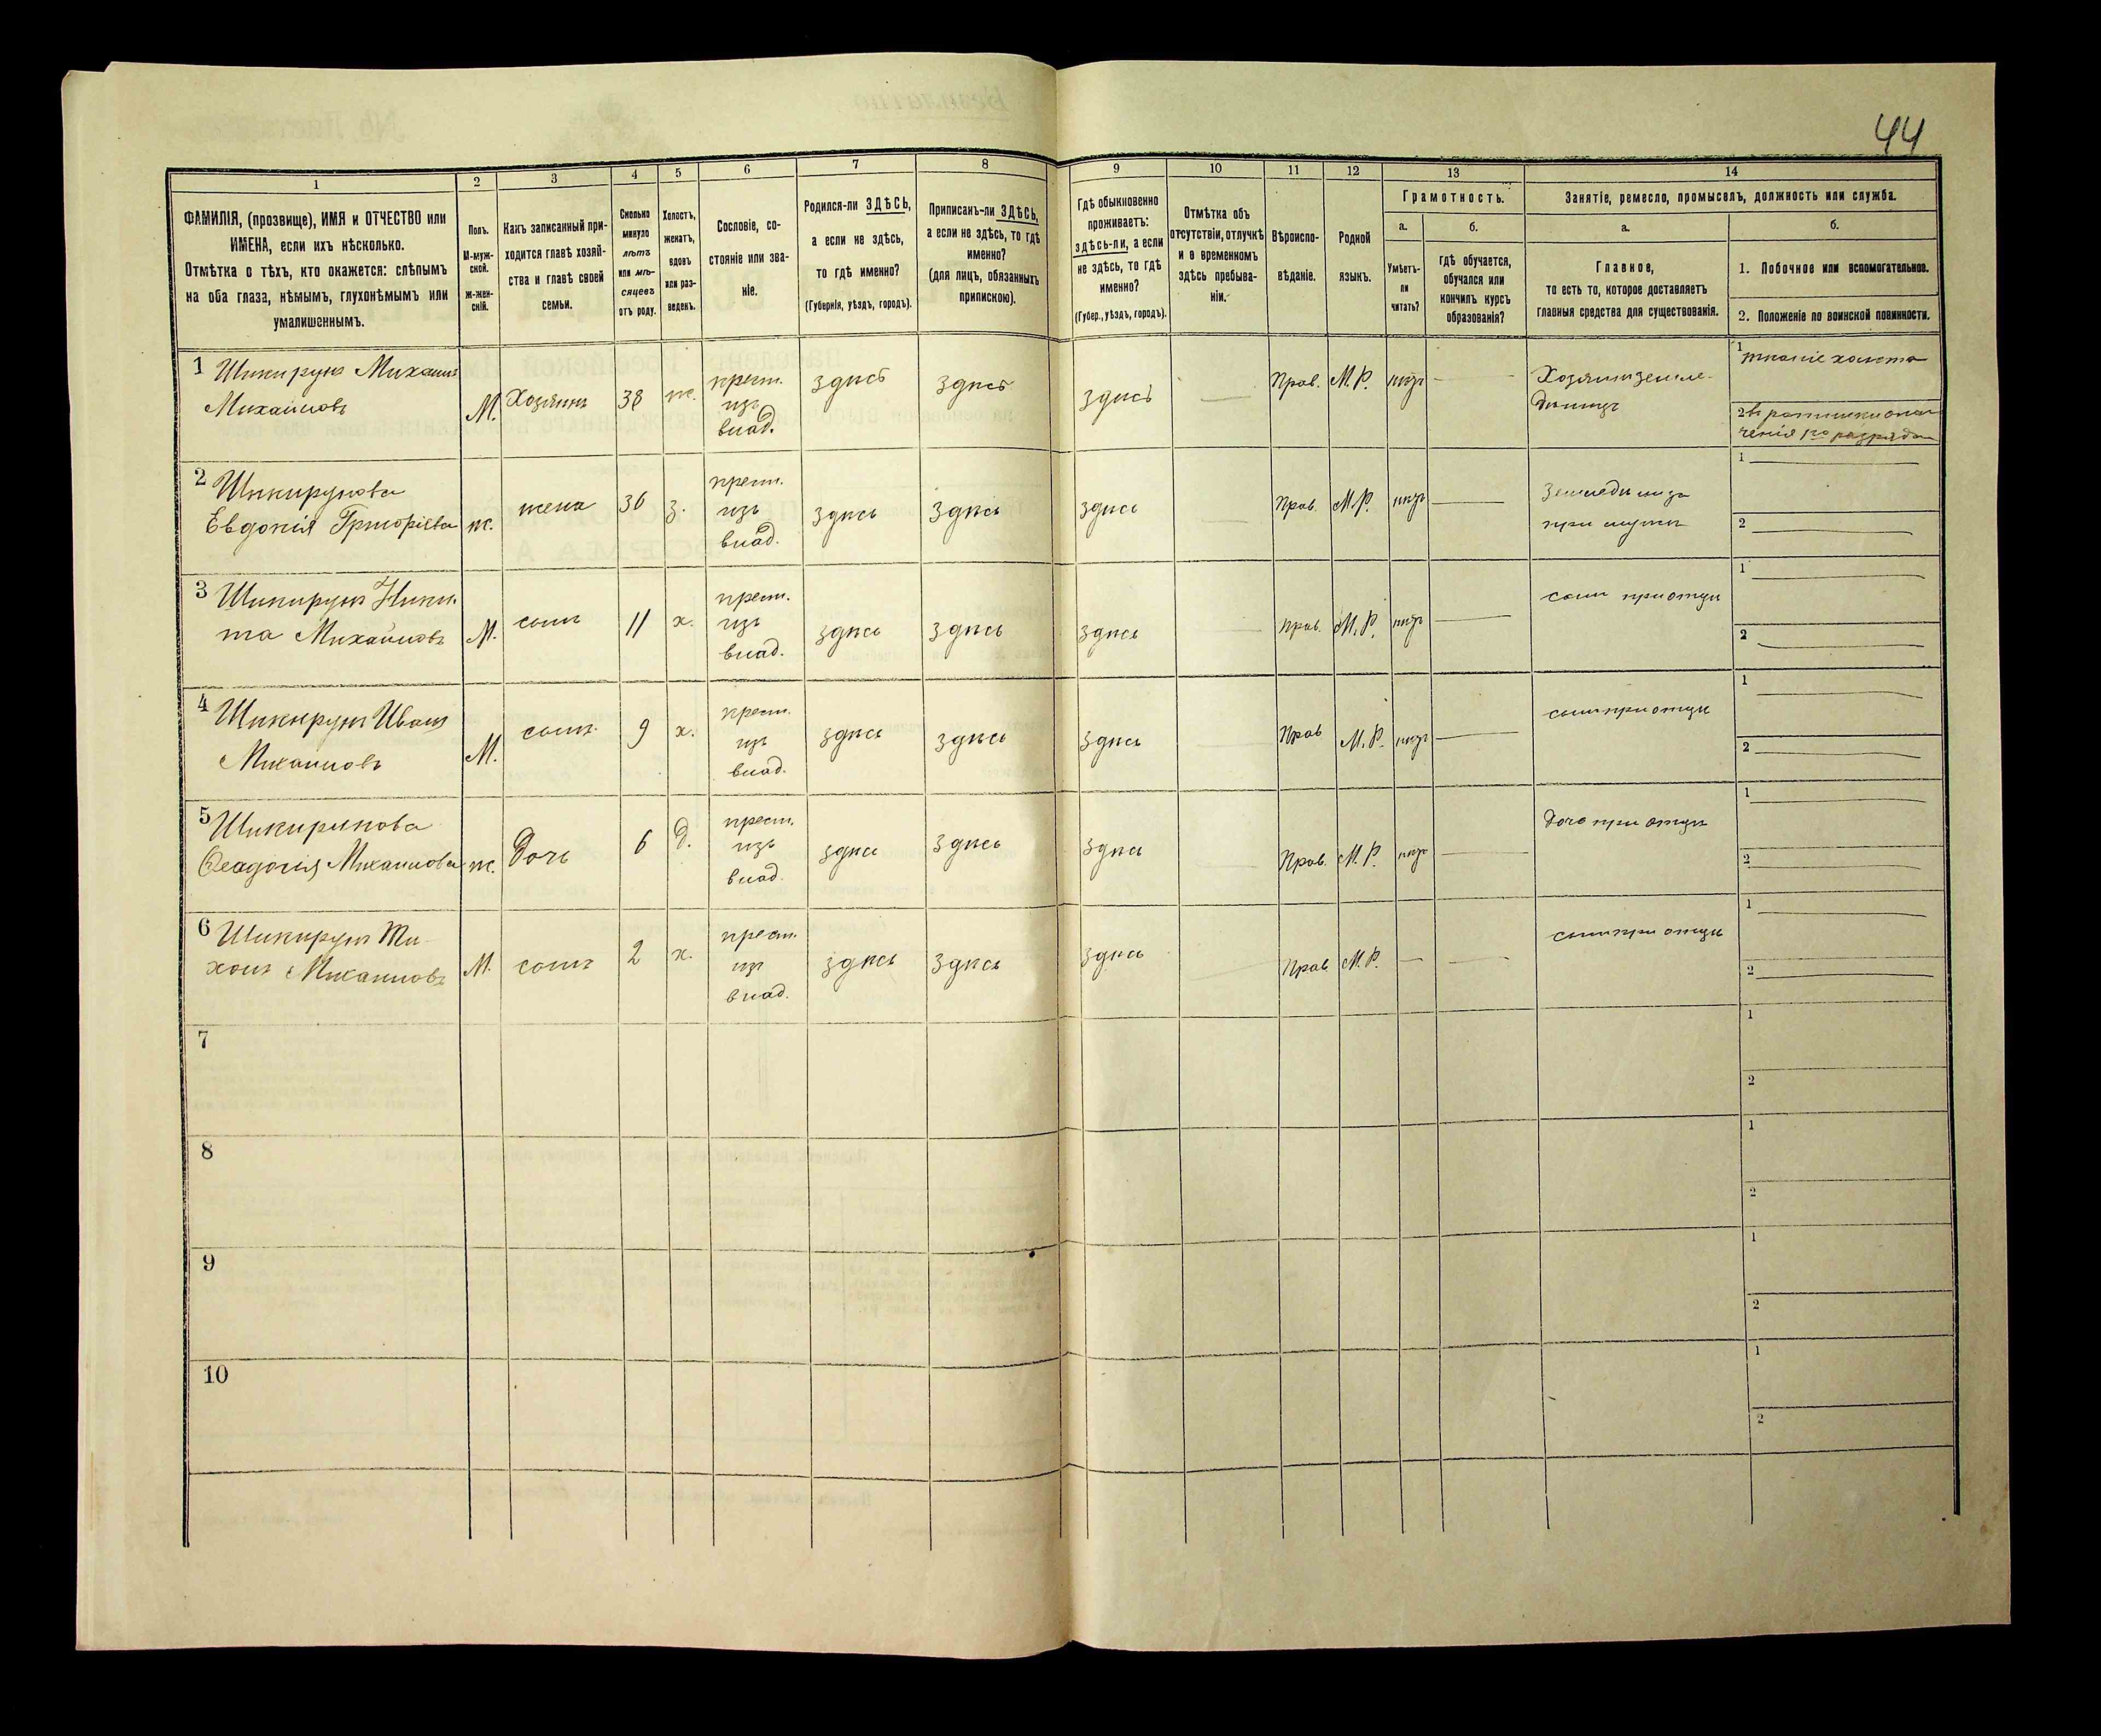 44
1 2 3 4 5 6 7 8 9 10 11 12 13 14
ФАМИЛІЯ, (прозвище), ИМЯ и ОТЧЕСТВО или
ИМЕНА, если ихъ нѣсколько.
Отмѣтка о тѣхъ, кто окажется: слѣпымъ
на оба глаза, нѣмымъ, глухонѣмымъ или
умалишеннымъ.
Полъ.
М-муж-
ской.
Ж-жен-
скій.
Какъ записанный при-
ходится главѣ хозяй-
ства и главѣ своей
семьи.
Сколько
минуло
лѣтъ
или мѣ-
сяцевъ
отъ роду.
Холостъ,
женатъ,
вдовъ
или раз-
веденъ.
Сословіе, со-
стояніе или зва-
ніе.
Родился-ли ЗДѢСЬ,
а если не здѣсь,
то гдѣ именно?
(Губернія, уѣздъ, городъ).
Приписанъ-ли ЗДѢСЬ,
а если не здѣсь, то гдѣ
именно?
(для лицъ, обязанныхъ
припискою).
Гдѣ обыкновенно
проживаетъ:
здѣсь-ли, а если
не здѣсь, то гдѣ
именно?
(Губер., уѣздъ, городъ).
Отмѣтка объ
отсутствіи, отлучкѣ
и о временномъ
здѣсь пребыва-
ніи.
Вѣроиспо-
вѣданіе.
Родной
языкъ.
Грамотность.
а.
Умѣетъ-
ли
читать?
б.
гдѣ обучается,
обучался или
кончилъ курсъ
образованія?
Занятіе, ремесло, промыселъ, должность или служба.
а.
Главное,
то есть то, которое доставляетъ
главныя средства для существованія.
б.
1. Побочное или вспомогательное.
2. Положеніе по воинской повинности.
1 Шикирукъ Михаилъ
Михайловъ
М. Хозяинъ 38 ж. крест.
изъ
влад.
здѣсь здѣсь здѣсь Прав. М. Р. нѣтъ Хозяинъ земле-
дѣлецъ
1 тканіе холста
2 опол-
ченія 1го разряда
2 Шикирукова
Евдокія Григорьева
ж. жена 36 з. крест.
изъ
влад.
здѣсь здѣсь здѣсь Прав. М. Р. нѣтъ земледѣлица
при мужѣ
1
2
3 Шикирукъ Ники-
та Михайловъ
М. сынъ 11 х. крест.
изъ
влад.
здѣсь здѣсь здѣсь Прав. М. Р. нѣтъ сынъ при отцѣ
1
2
4 Шикирукъ Иванъ
Михаиловъ
М. сынъ 9 х. крест.
изъ
влад.
здѣсь здѣсь здѣсь Прав М. Р. нѣтъ сынъ при отцѣ
1
2
5 Шикирукова
Ѳеодосія Михаилова
ж. дочь 6 д. крест.
изъ
влад.
здѣсь здѣсь здѣсь Прав. М. Р. нѣтъ дочь при отцѣ
1
2
6 Шикирукъ Ти-
хонъ Михаиловъ
М. сынъ 2 х. крест.
изъ
влад.
здѣсь здѣсь здѣсь Прав М. Р. сынъ при отцѣ
1
2
7
1
2
8
1
2
9
1
2
10
1
2